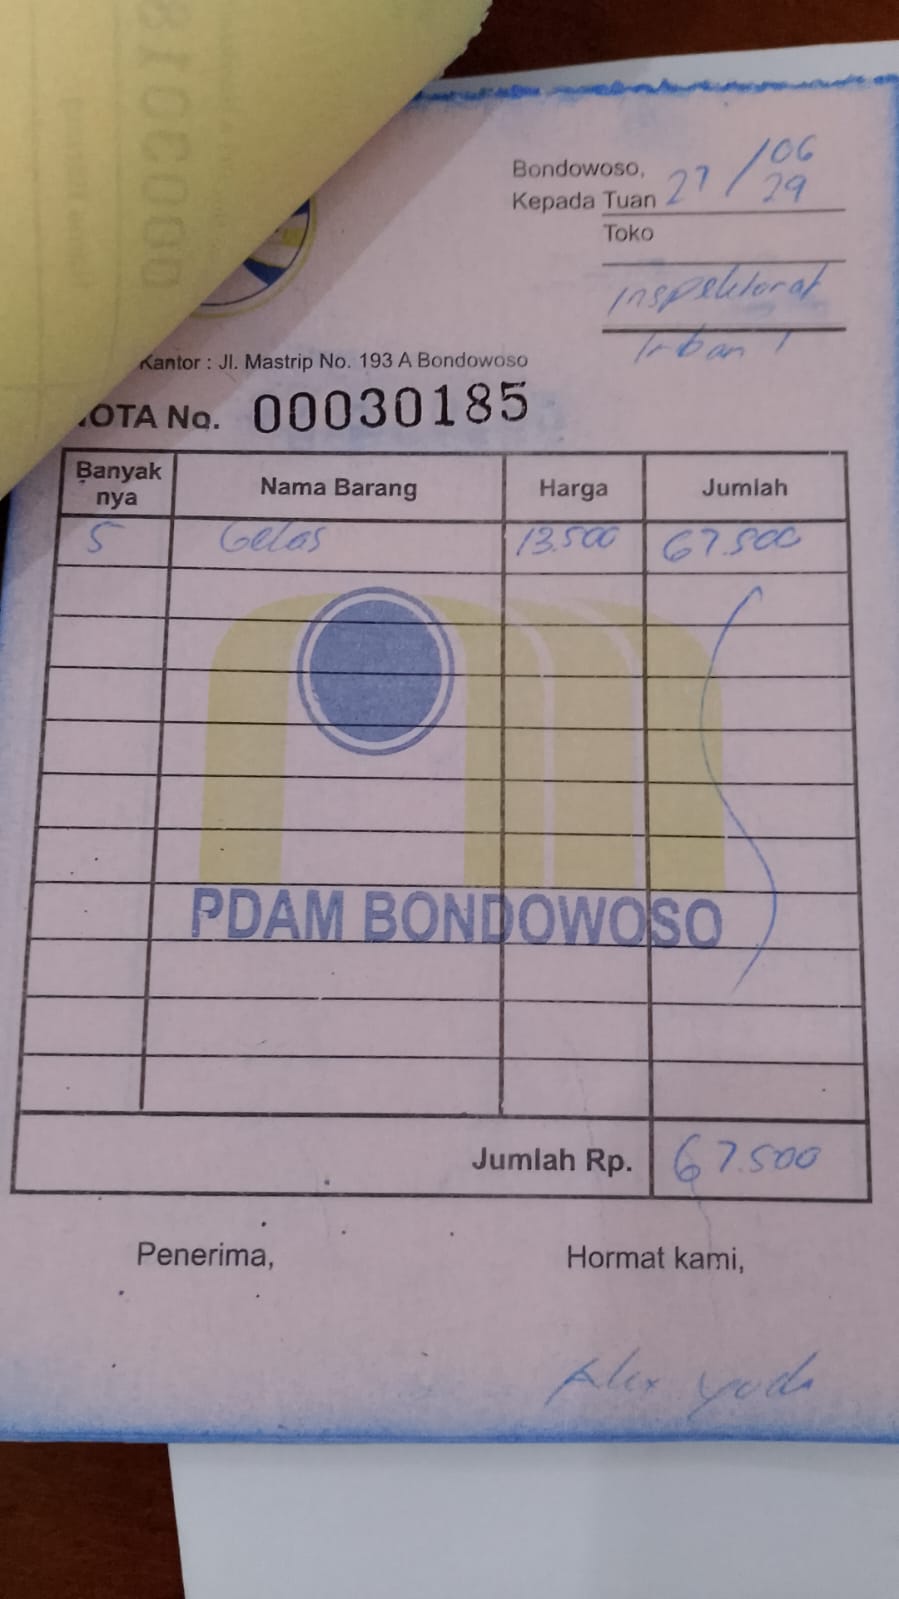 Bondowoso, 27/06
Kepada Tuan 29
Toko
Inspektorat
Irban 1
Kantor : Jl. Mastrip No. 193 A Bondowoso
NOTA No. 00030185
Banyak nya Nama Barang Harga Jumlah
5 Gelas 13.500 67.500
PDAM BONDOWOSO
Jumlah Rp. 67.500
Penerima, Hormat kami,
Alex yuda